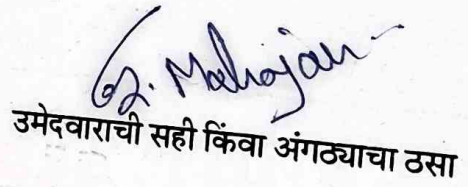 G. Mahajan
उमेदवाराची सही किंवा अंगठ्याचा ठसा